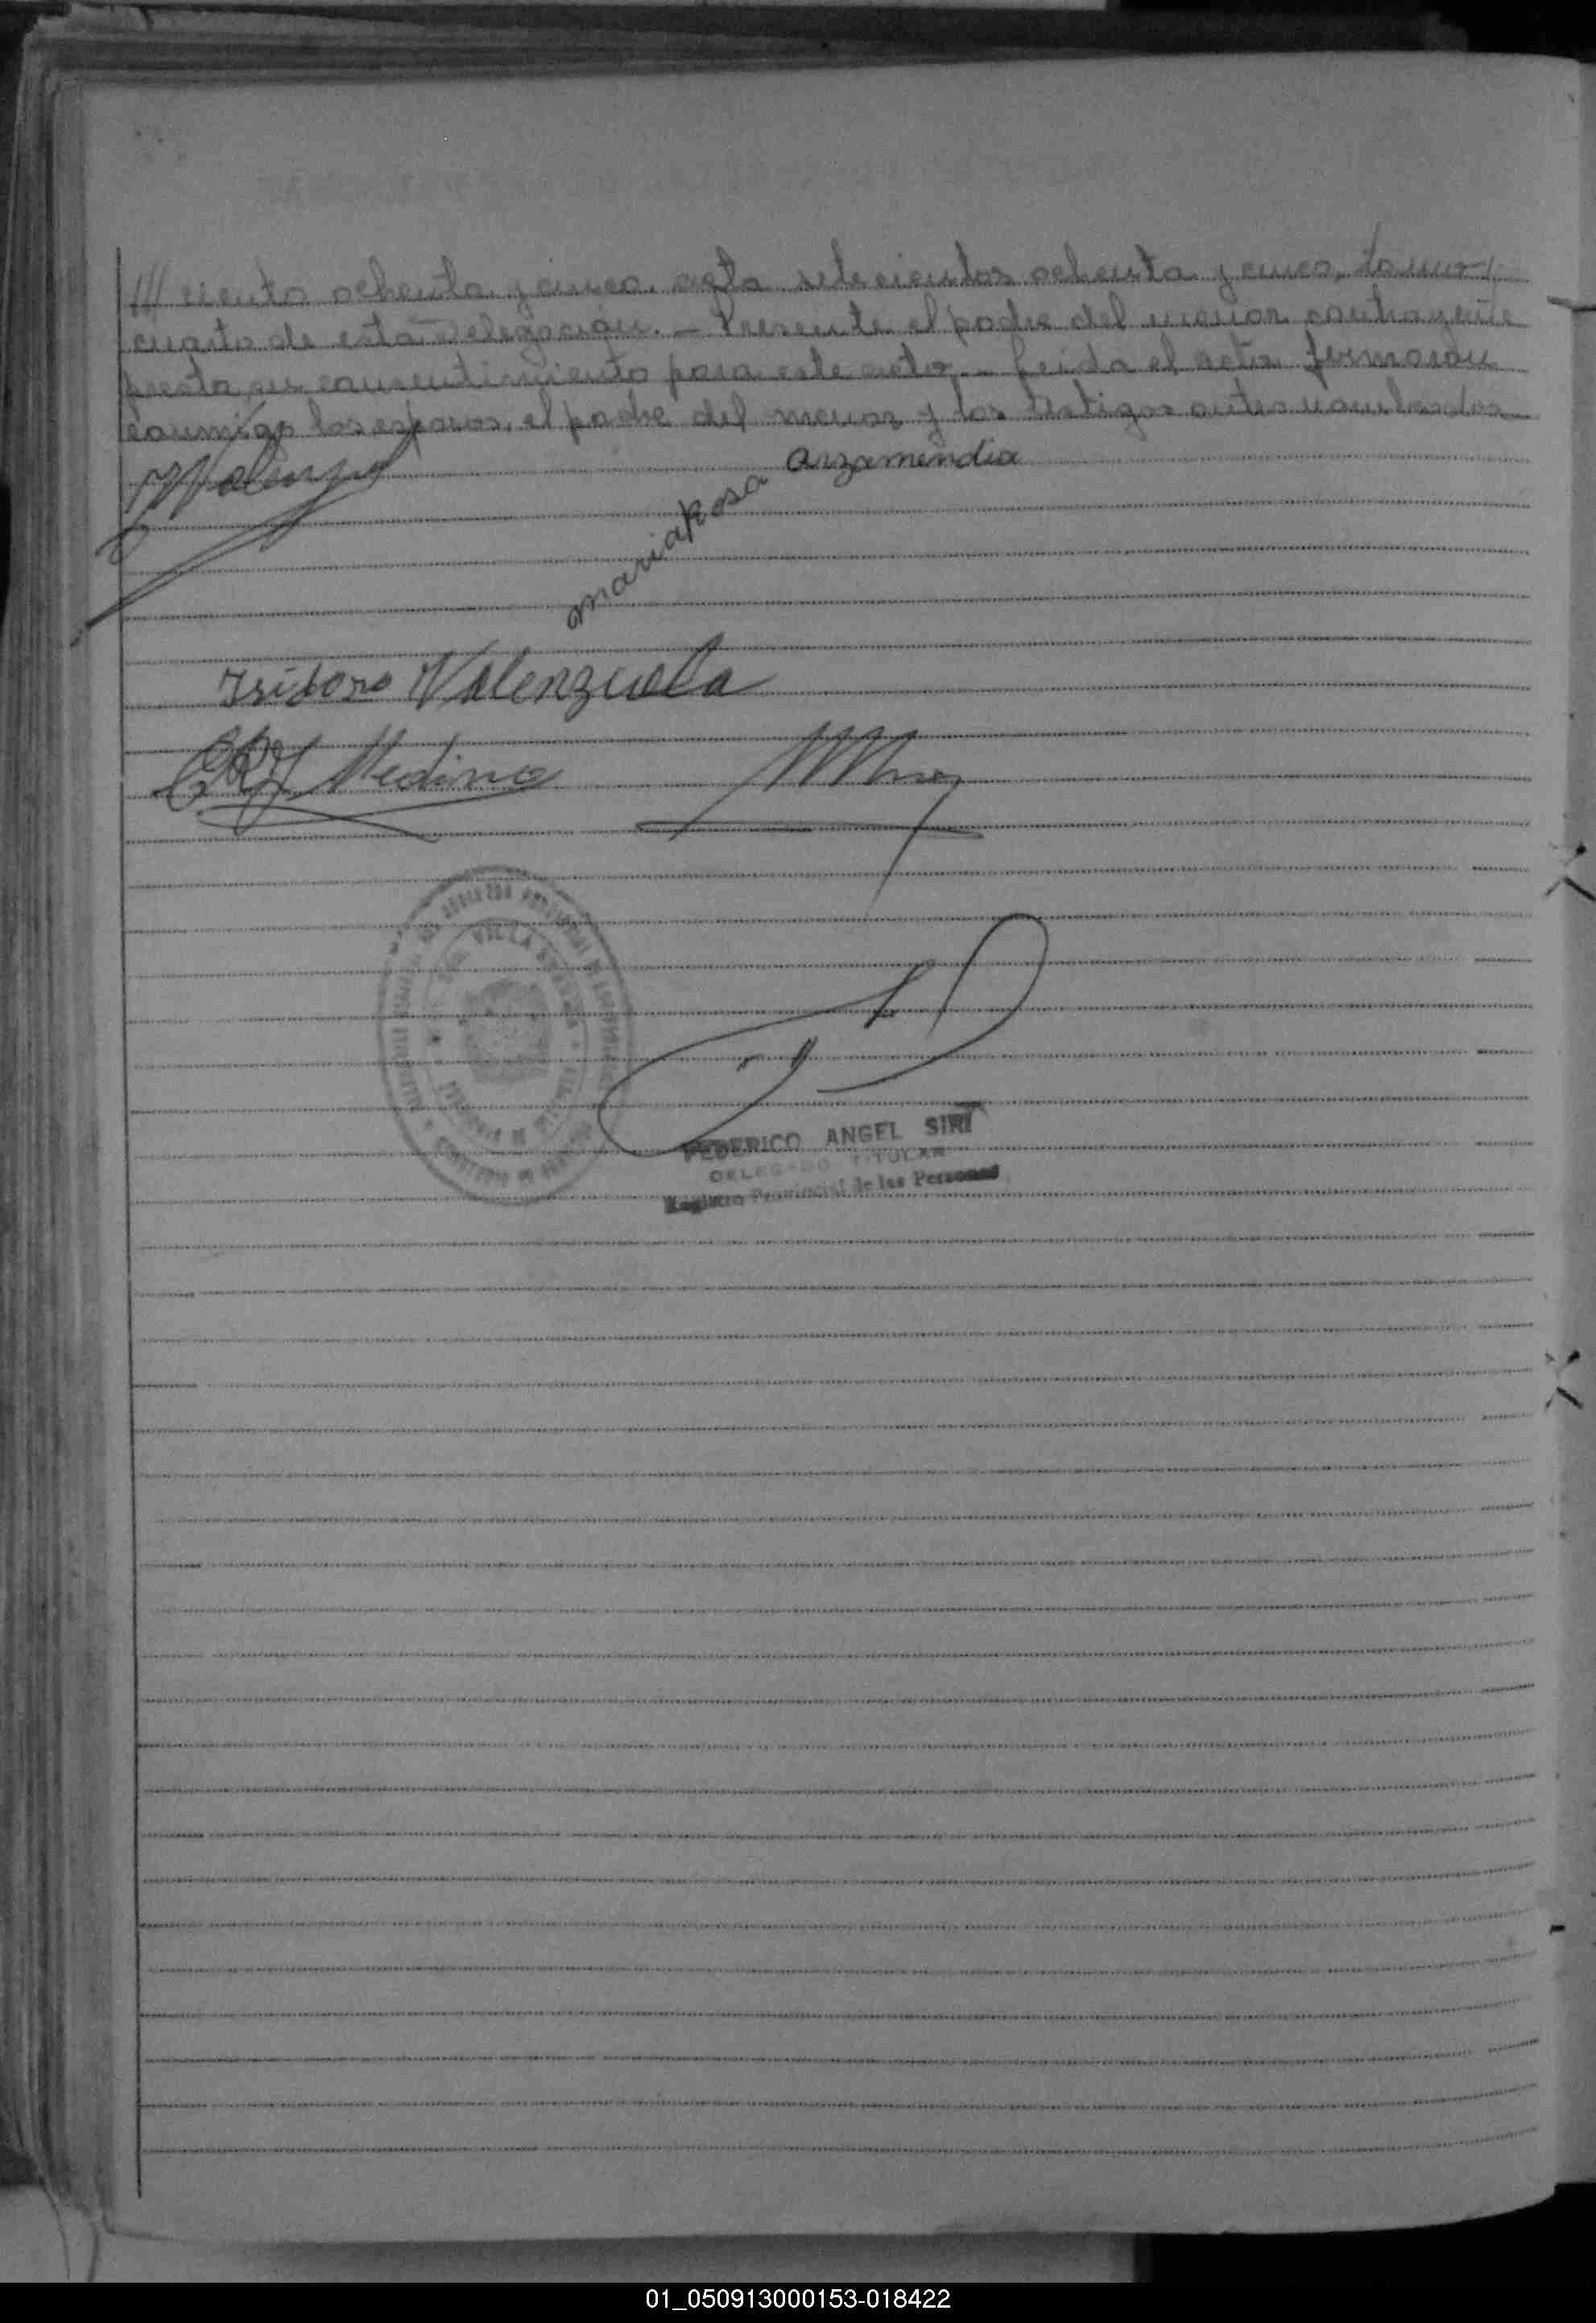 /// ciento ochenta y cinco, acta setecientos ochenta y cinco, tomo
cuarto de esta Delegación. - Presente el padre del menor contrayente
presta su consentimiento para este acto. - Leída el acta firmaron
conmigo los esposos, el padre del menor y los testigos antes nombrados
Arzamendia
mariaRosa
Isidoro Valenzuela
Medina
VILLA
FEDERICO ANGEL SIRI
DELEGADO TITULAR
Registro Provincial de las Personas
01_050913000153-018422